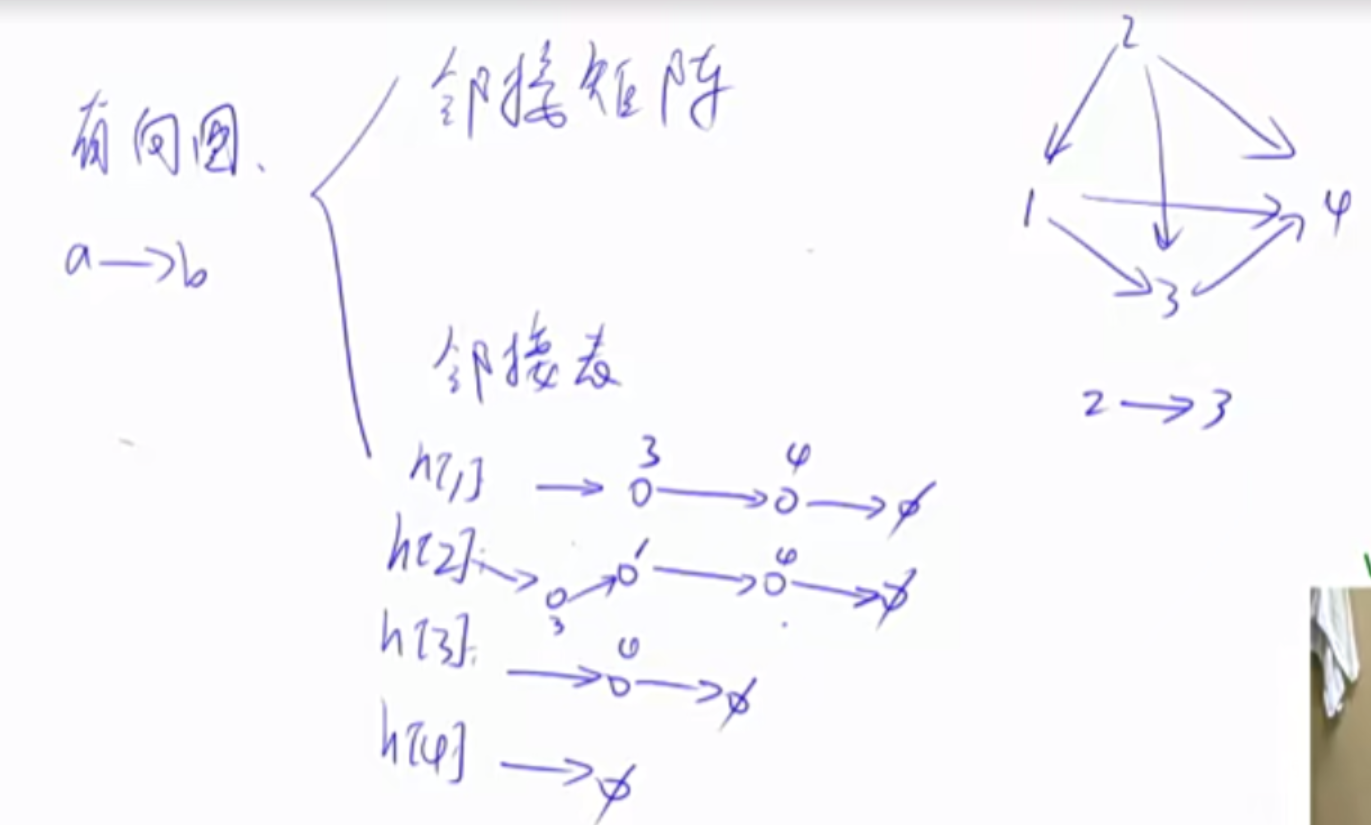 有向图、
a→b
邻接矩阵
邻接表
h[1] → 3 → 4 → ∅
h[2]: → 3 → 1 → 4 → ∅
h[3]: → 4 → ∅
h[4] → ∅
2
1
4
3
2→3